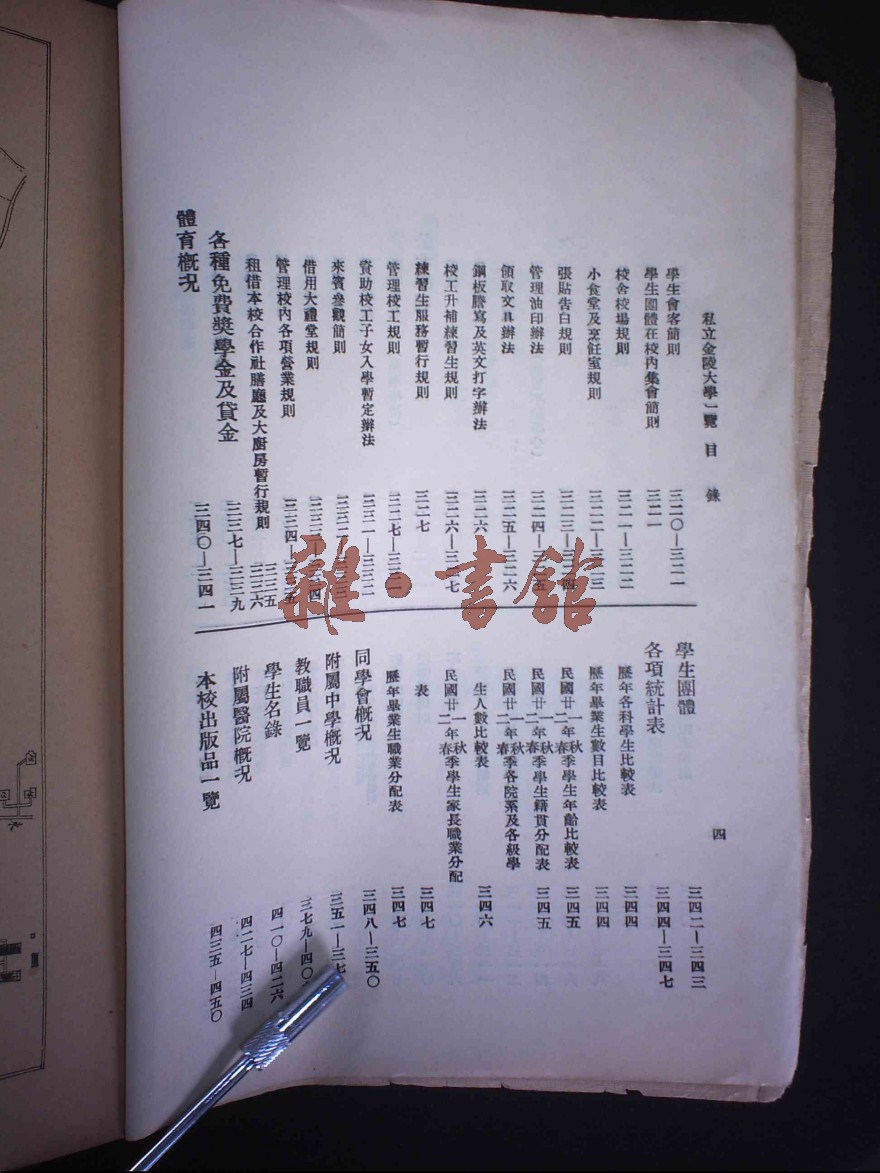 私立金陵大學一覽 目 錄 四
學生會客簡則 三二〇—三二一
學生團體在校內集會簡則 三二一
校舍校場規則 三二一—三二二
小食堂及烹飪室規則 三二二—三二三
張貼告白規則 三二三—三二四
管理油印辦法 三二四—三二五
領取文具辦法 三二五—三二六
鋼板謄寫及英文打字辦法 三二六
校工升補練習生規則 三二六—三二七
練習生服務暫行規則 三二七
管理校工規則 三二七—三三一
資助校工子女入學暫定辦法 三三一—三三二
來賓參觀簡則 三三二—三三三
借用大禮堂規則 三三三—三三四
管理校內各項營業規則 三三四—三三五
租借本校合作社膳廳及大廚房暫行規則 三三五—三三六
各種免費獎學金及貸金 三三七—三三九
體育概況 三四〇—三四一
學生團體 三四二—三四三
各項統計表 三四四—三四七
歷年各科學生比較表 三四四
歷年畢業生數目比較表 三四四
民國廿一年秋二年春季學生年齡比較表 三四五
民國廿一年秋二年春季學生籍貫分配表 三四五
民國廿一年秋二年春季各院系及各級學
生人數比較表 三四六
民國廿一年秋二年春季學生家長職業分配
表 三四七
歷年畢業生職業分配表 三四七
同學會概況 三四八—三五〇
附屬中學概況 三五一—三七
教職員一覽 三七九—四〇
學生名錄 四一〇—四二六
附屬醫院概況 四二七—四三四
本校出版品一覽 四三五—四五〇
雜·書館